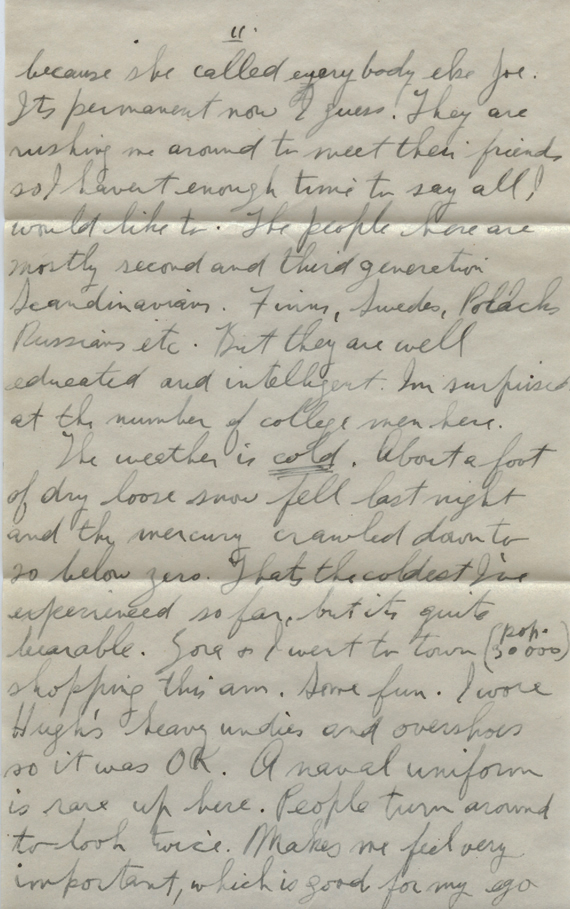 11.
because she called everybody else Joe.
Its permanent now I guess. They are
rushing me around to meet their friends
so I havent enough time to say all I
would like to. The people here are
mostly second and third generation
Scandinavians. Finns, Swedes, Polacks
Russians etc. But they are well
educated and intelligent. Im surprised
at the number of college men here.
The weather is cold. About a foot
of dry loose snow fell last night
and the mercury crawled down to
below zero. Thats the coldest I've
experienced so far, but its quite
bearable. & I went to town (pop.
shopping this am. Some fun. I wore
Hugh's heavy undies and overshoes
so it was OK. A naval uniform
is rare up here. People turn around
to look twice. Makes me feel very
important, which is good for my ego